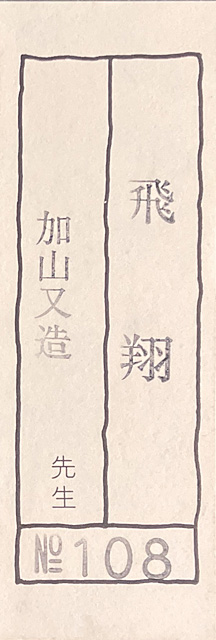 飛翔
加山又造 先生
№108